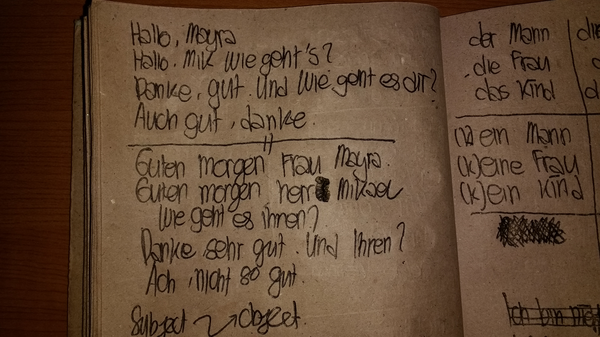 Hallo, Mayra
Hallo. Mik wie geht's?
Danke, gut. Und wie geht es dir?
Auch gut, danke.
Guten morgen Frau Mayra.
Guten morgen herr Mikael
Wie geht es ihnen?
Danke sehr gut. Und Ihren?
Ach, nicht so gut.
Subject object.
der Mann
die Frau
das Kind
(k) ein Mann
(k) eine Frau
(k) ein Kind
Ich bin